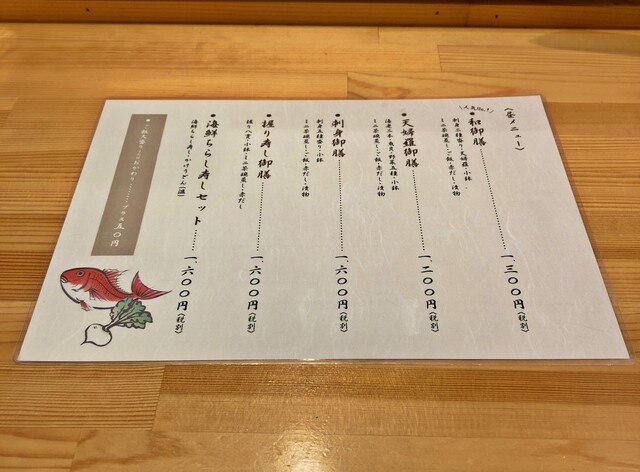 〈昼メニュー〉
人気No.1
・和御膳………一、三〇〇円(税別)
刺身三種盛り・天婦羅・小鉢
ミニ茶碗蒸し・ご飯・赤だし・漬物
・天婦羅御膳………一、二〇〇円(税別)
海老二本・魚貝・野菜五種・小鉢
ミニ茶碗蒸し・ご飯・赤だし・漬物
・刺身御膳………一、六〇〇円(税別)
刺身五種盛り・小鉢
ミニ茶碗蒸し・ご飯・赤だし・漬物
・握り寿し御膳………一、六〇〇円(税別)
握り八貫・小鉢・ミニ茶碗蒸し・赤だし
・海鮮ちらし寿しセット………一、六〇〇円(税別)
海鮮ちらし寿し・かけうどん(温)
・ご飯大盛り又はおかわり………プラス五〇円